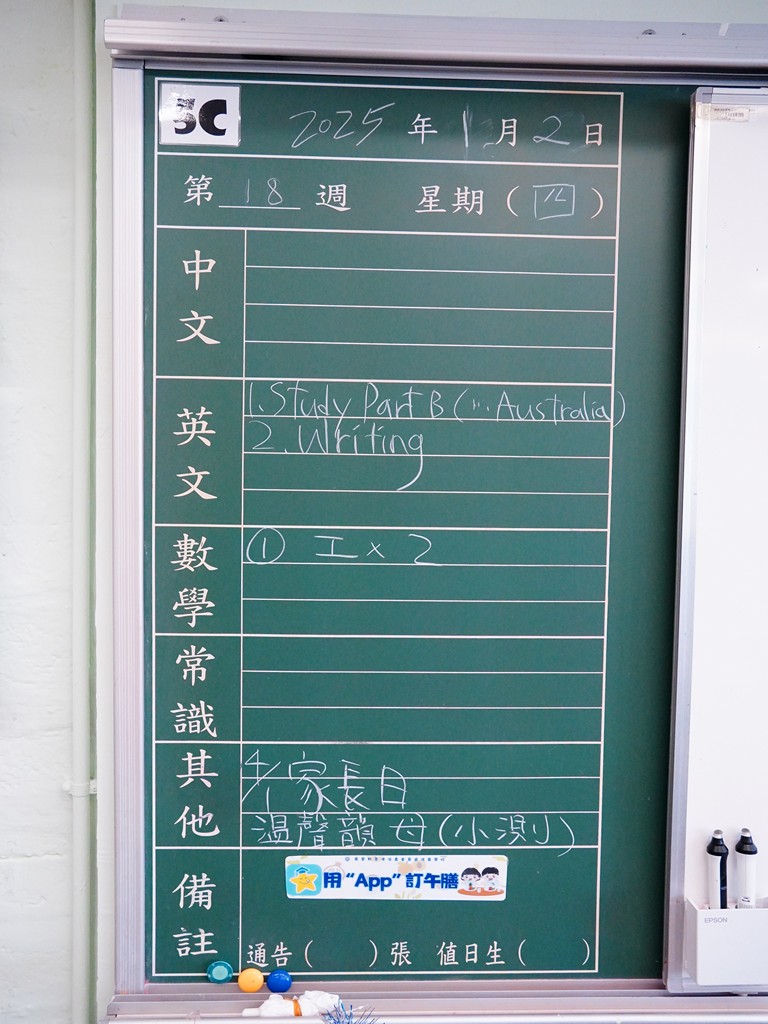 3C
2025年1月2日
第18週 星期(四)
中文
英文
1. Study Part B (... Australia)
2. Writing
數學
① 工 x 2
常識
其他
4/1 家長日
溫聲韻母(小測)
備註
用“App”訂午膳
通告( )張 值日生( )
EPSON